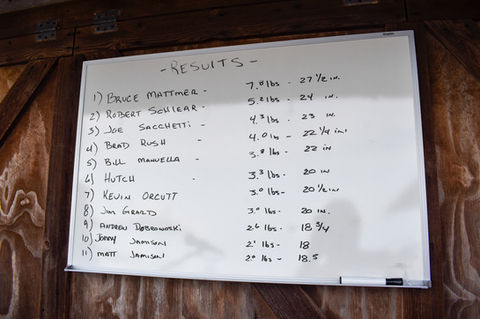 - RESULTS -
1) BRUCE MATTMER - 7.0 lbs - 27 1/2 in.
2) ROBERT SCHLEAR - 5.2 lbs - 24 in.
3) JOE SACCHETTI - 4.3 lbs - 23 in.
4) BRAD RUSH - 4.0 lbs - 22 1/4 in.
5) BILL MANUELLA - 3.8 lbs - 22 in
6) HUTCH - 3.3 lbs - 20 in
7) KEVIN ORCUTT 3.0 lbs - 20 1/2 in
8) JIM GIRARD 3.0 lbs - 20 in.
9) ANDREW DOBROWSKI 2.6 lbs - 18 3/4
10) JONNY JAMISON 2.1 lbs - 18
11) MATT JAMISON 2.0 lbs - 18.5